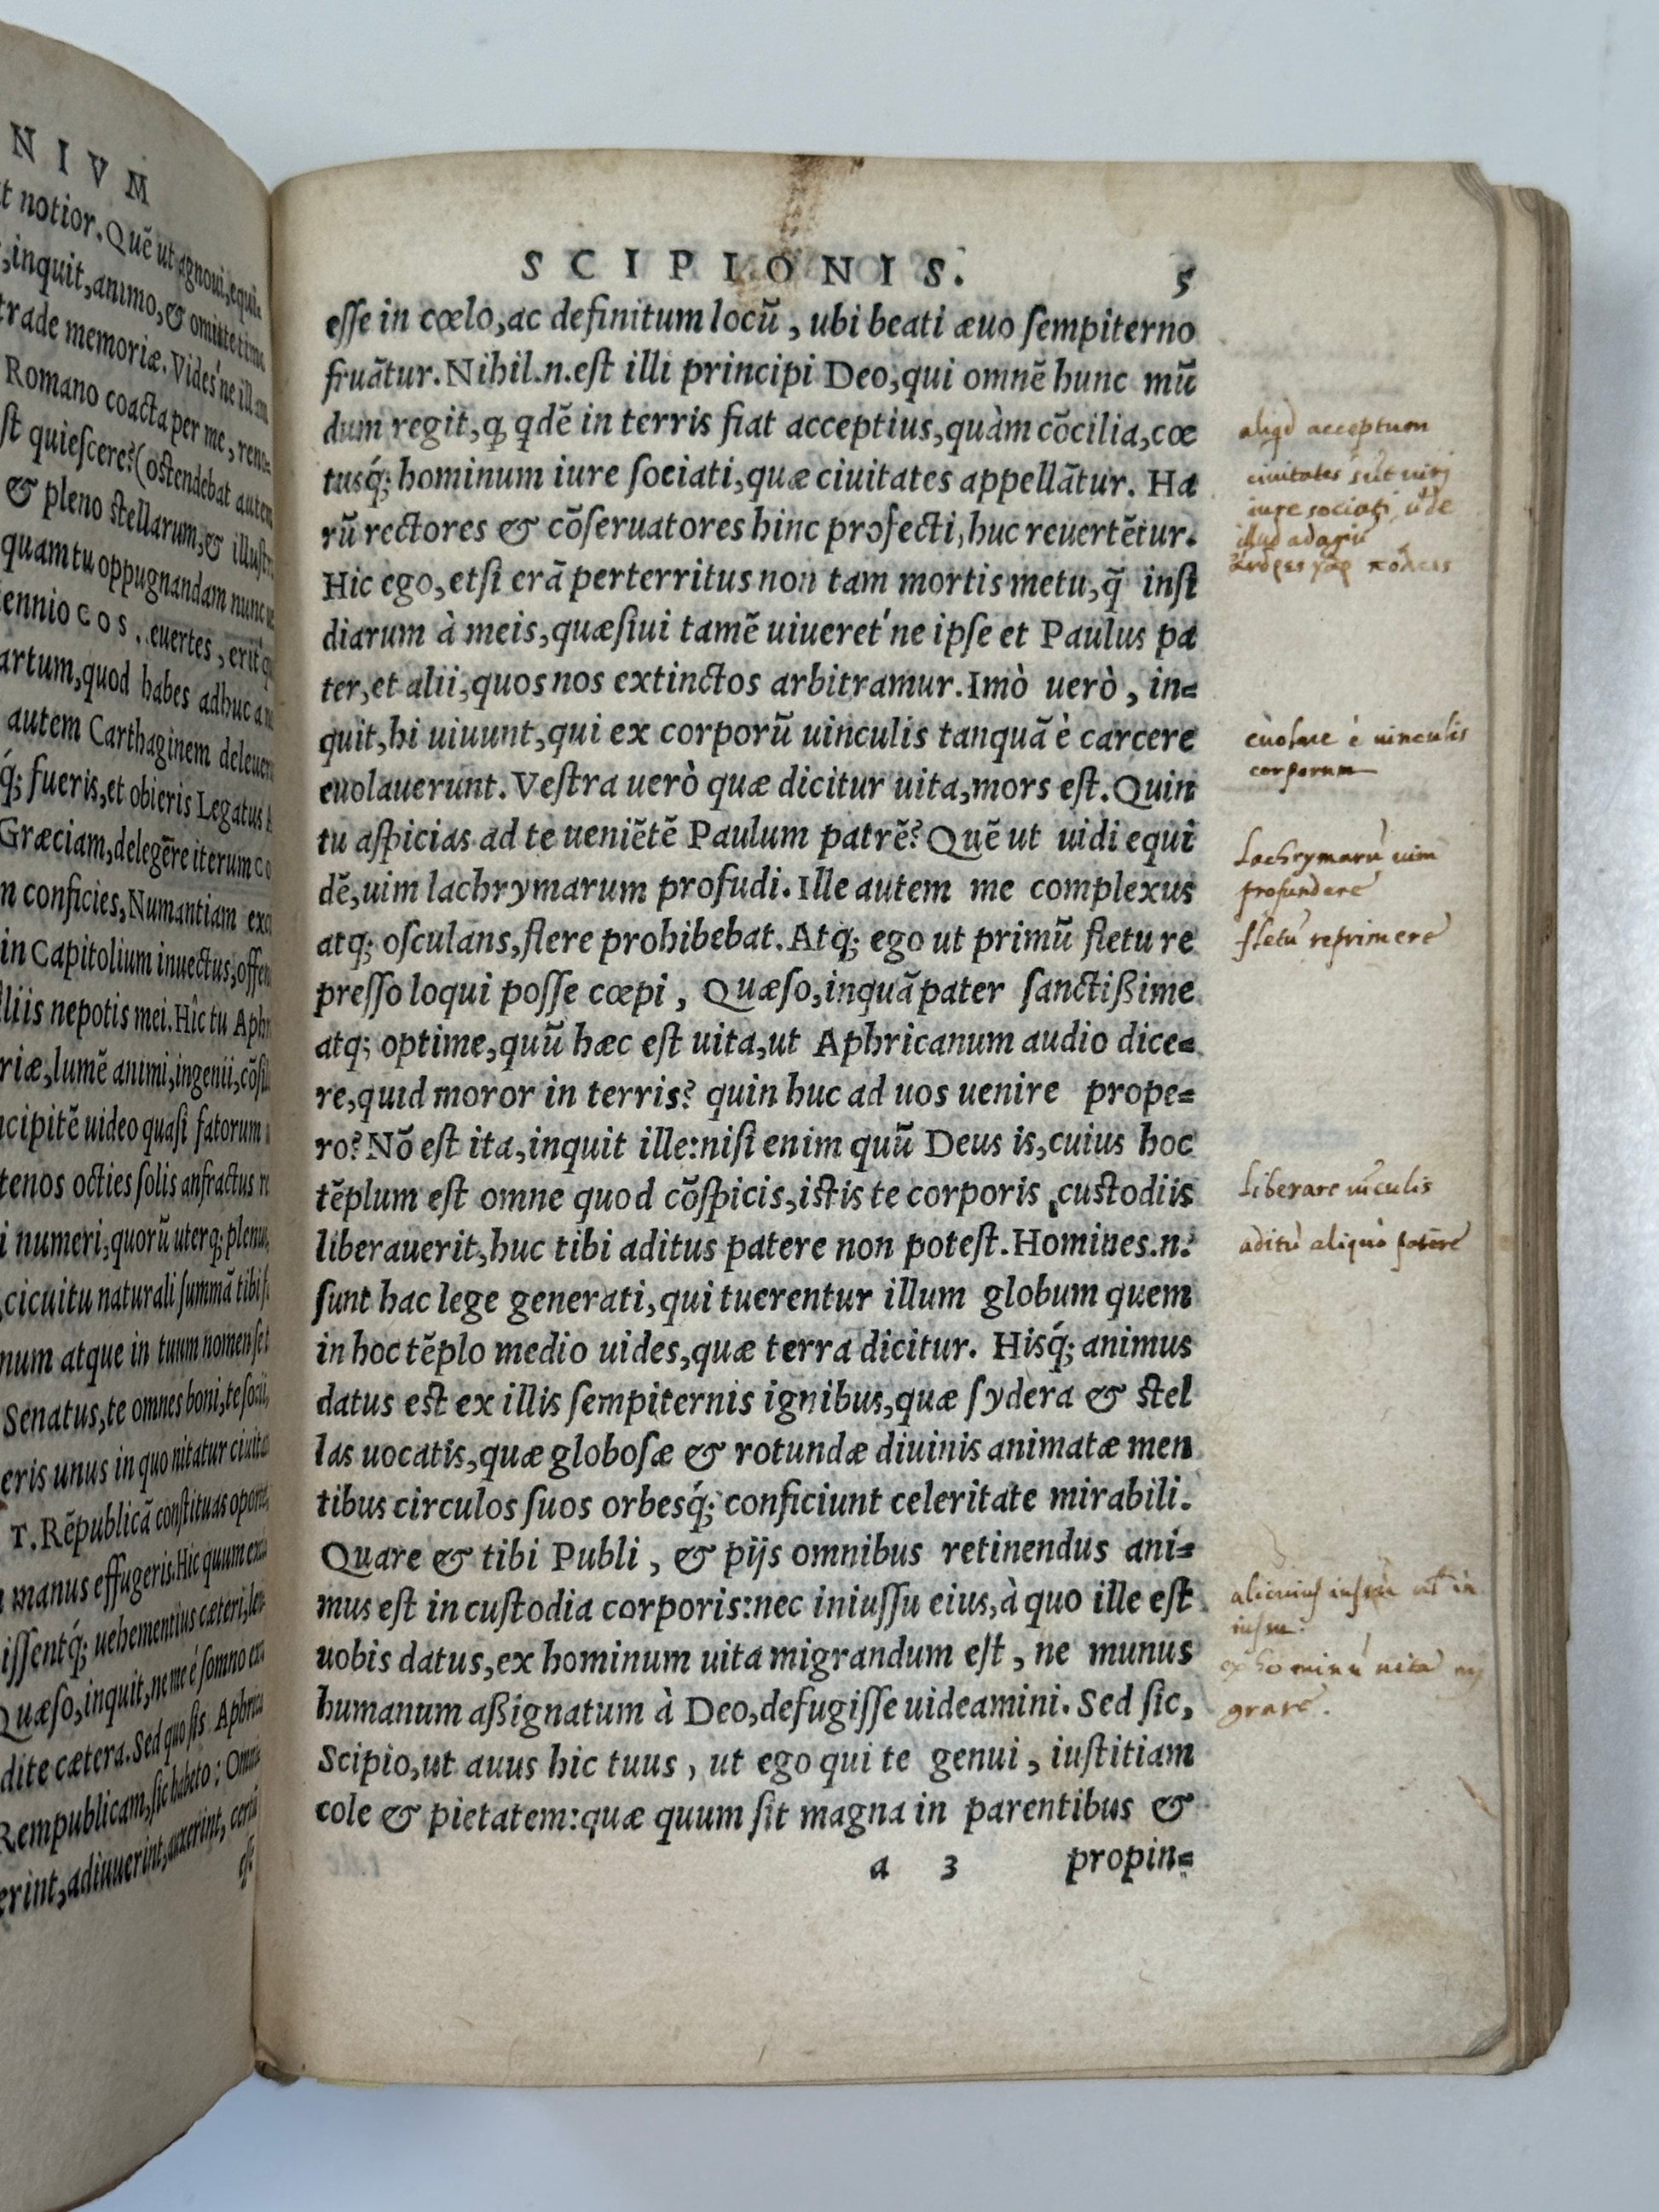 NIVM
t notior. Quē ut agnoui, equi-
, inquit, animo, & omitte time
trade memoriæ. Vides'ne illam
Romano coacta per me, reno-
st quiescere? (ostendebat autem
& pleno stellarum, & illust
quam tu oppugnandam nunc
ennio cos.. euertes, erit'q
artum, quod habes adhuc a
autem Carthaginem deleue
q́; fueris, et obieris Legatus
Græciam, delegēre iterum co
n conficies, Numantiam exc
in Capitolium inuectus, offen
liis nepotis mei. Hîc tu Aphr
riæ, lumē animi, ingenii, cōsi
ncipitē uideo quasi fatorum
tenos octies solis anfractus r
i numeri, quorū uterq; plenu
cicuitu naturali summā tibi
num atque in tuum nomen se
Senatus, te omnes boni, te socii,
eris unus in quo nitatur ciuita
T. Rēpublicā constituas oport
manus effugeris. Hic quum
issentq́; uehementius cæteri, le
Quæso, inquit, ne me è somno
dite cætera. Sed quo sis Aphrica
Rempublicam, sic habeto: Omni
erint, adiuuerint, auxerint, certū
SCIPIONIS. 5
esse in cœlo, ac definitum locū, ubi beati æuo sempiterno
fruātur. Nihil.n.est illi principi Deo, qui omnē hunc mū
dum regit, ꝗ qdē in terris fiat acceptius, quàm cōcilia, cœ
tusq́; hominum iure sociati, quæ ciuitates appellātur. Ha
rū rectores & cōseruatores hinc profecti, huc reuertētur.
Hic ego, etsi erā perterritus non tam mortis metu, q̄ insi
diarum à meis, quæsiui tamē uiueret'ne ipse et Paulus pa
ter, et alii, quos nos extinctos arbitramur. Imò uerò, in-
quit, hi uiuunt, qui ex corporū uinculis tanquā è carcere
euolauerunt. Vestra uerò quæ dicitur uita, mors est. Quin
tu aspicias ad te ueniētē Paulum patrē? Quē ut uidi equi
dē, uim lachrymarum profudi. Ille autem me complexus
atq; osculans, flere prohibebat. Atq; ego ut primū fletu re
presso loqui posse cœpi, Quæso, inquā pater sanctißime
atq; optime, quū hæc est uita, ut Aphricanum audio dice-
re, quid moror in terris? quin huc ad uos uenire prope-
ro? Nō est ita, inquit ille: nisi enim quū Deus is, cuius hoc
tēplum est omne quod cōspicis, istis te corporis custodiis
liberauerit, huc tibi aditus patere non potest. Homines.n.
sunt hac lege generati, qui tuerentur illum globum quem
in hoc tēplo medio uides, quæ terra dicitur. Hisq́; animus
datus est ex illis sempiternis ignibus, quæ sydera & stel
las uocatis, quæ globosæ & rotundæ diuinis animatæ men
tibus circulos suos orbesq́; conficiunt celeritate mirabili.
Quare & tibi Publi, & pijs omnibus retinendus ani-
mus est in custodia corporis: nec iniussu eius, à quo ille est
uobis datus, ex hominum uita migrandum est, ne munus
humanum aßignatum à Deo, defugisse uideamini. Sed sic,
Scipio, ut auus hic tuus, ut ego qui te genui, iustitiam
cole & pietatem: quæ quum sit magna in parentibus &
a 3 propin-
aliqd acceptum
ciuitates sūt uiri
iure sociati, ūde
illud adagiū
ἄνδρες γὰρ πόλεις
euolare è uinculis
corporum
Lachrymarū uim
profundere
fletū reprimere
Liberare uīculis
aditū aliquò patere
alicuius iussu
iussu.
ex hominū uita mi
grare.